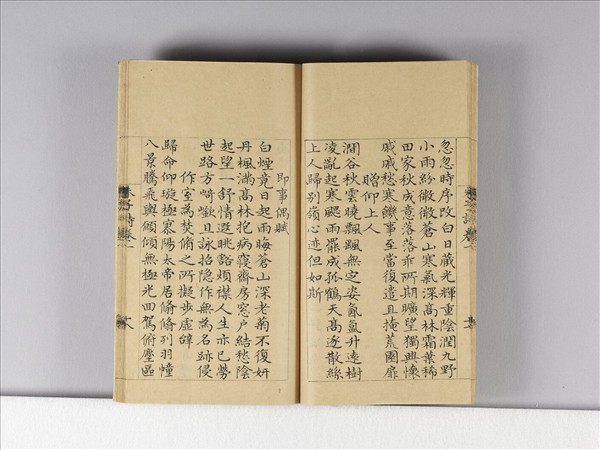 忽忽時序改白日藏光輝重陰潤九野
小雨紛微微蒼山寒氣深高林霜葉稀
田家秋成意落落乖所期曠望獨興懷
戚戚愁寒饑事至當復遣且掩荒園扉
贈仰上人
澗谷秋雲曉飄颻無定姿氤氳升遠樹
凌亂起寒颸雨罷成孤鶴天高逐散絲
上人歸別嶺心迹但如斯
即事偶賦
白煙竟日起雨晦蒼山深老菊不復妍
丹楓滿高林抱病寢齋房窓戶結愁陰
起望一舒情遐眺豁煩襟人生亦已勞
世路方崎嶔且詠招隱作無為名跡侵
作室為焚脩之所擬步虛辭
歸命仰璇極寥陽太帝居翛翛列羽幢
八景騰飛輿願傾無極光回駕俯塵區